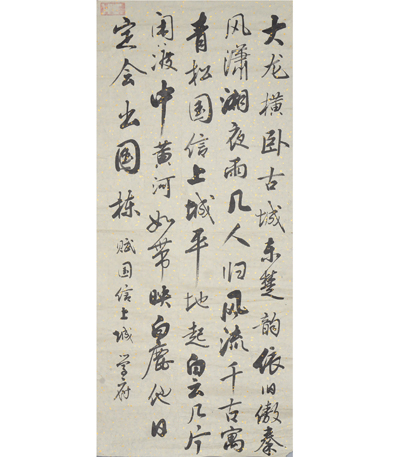 大龙横卧古城东楚韵依旧傲秦
风潇湘夜雨几人归风流千古寓
青松国信上城平地起白云几片
闲渡中黄河如带映白鹿他日
定会出国栋
赋国信上城 学府